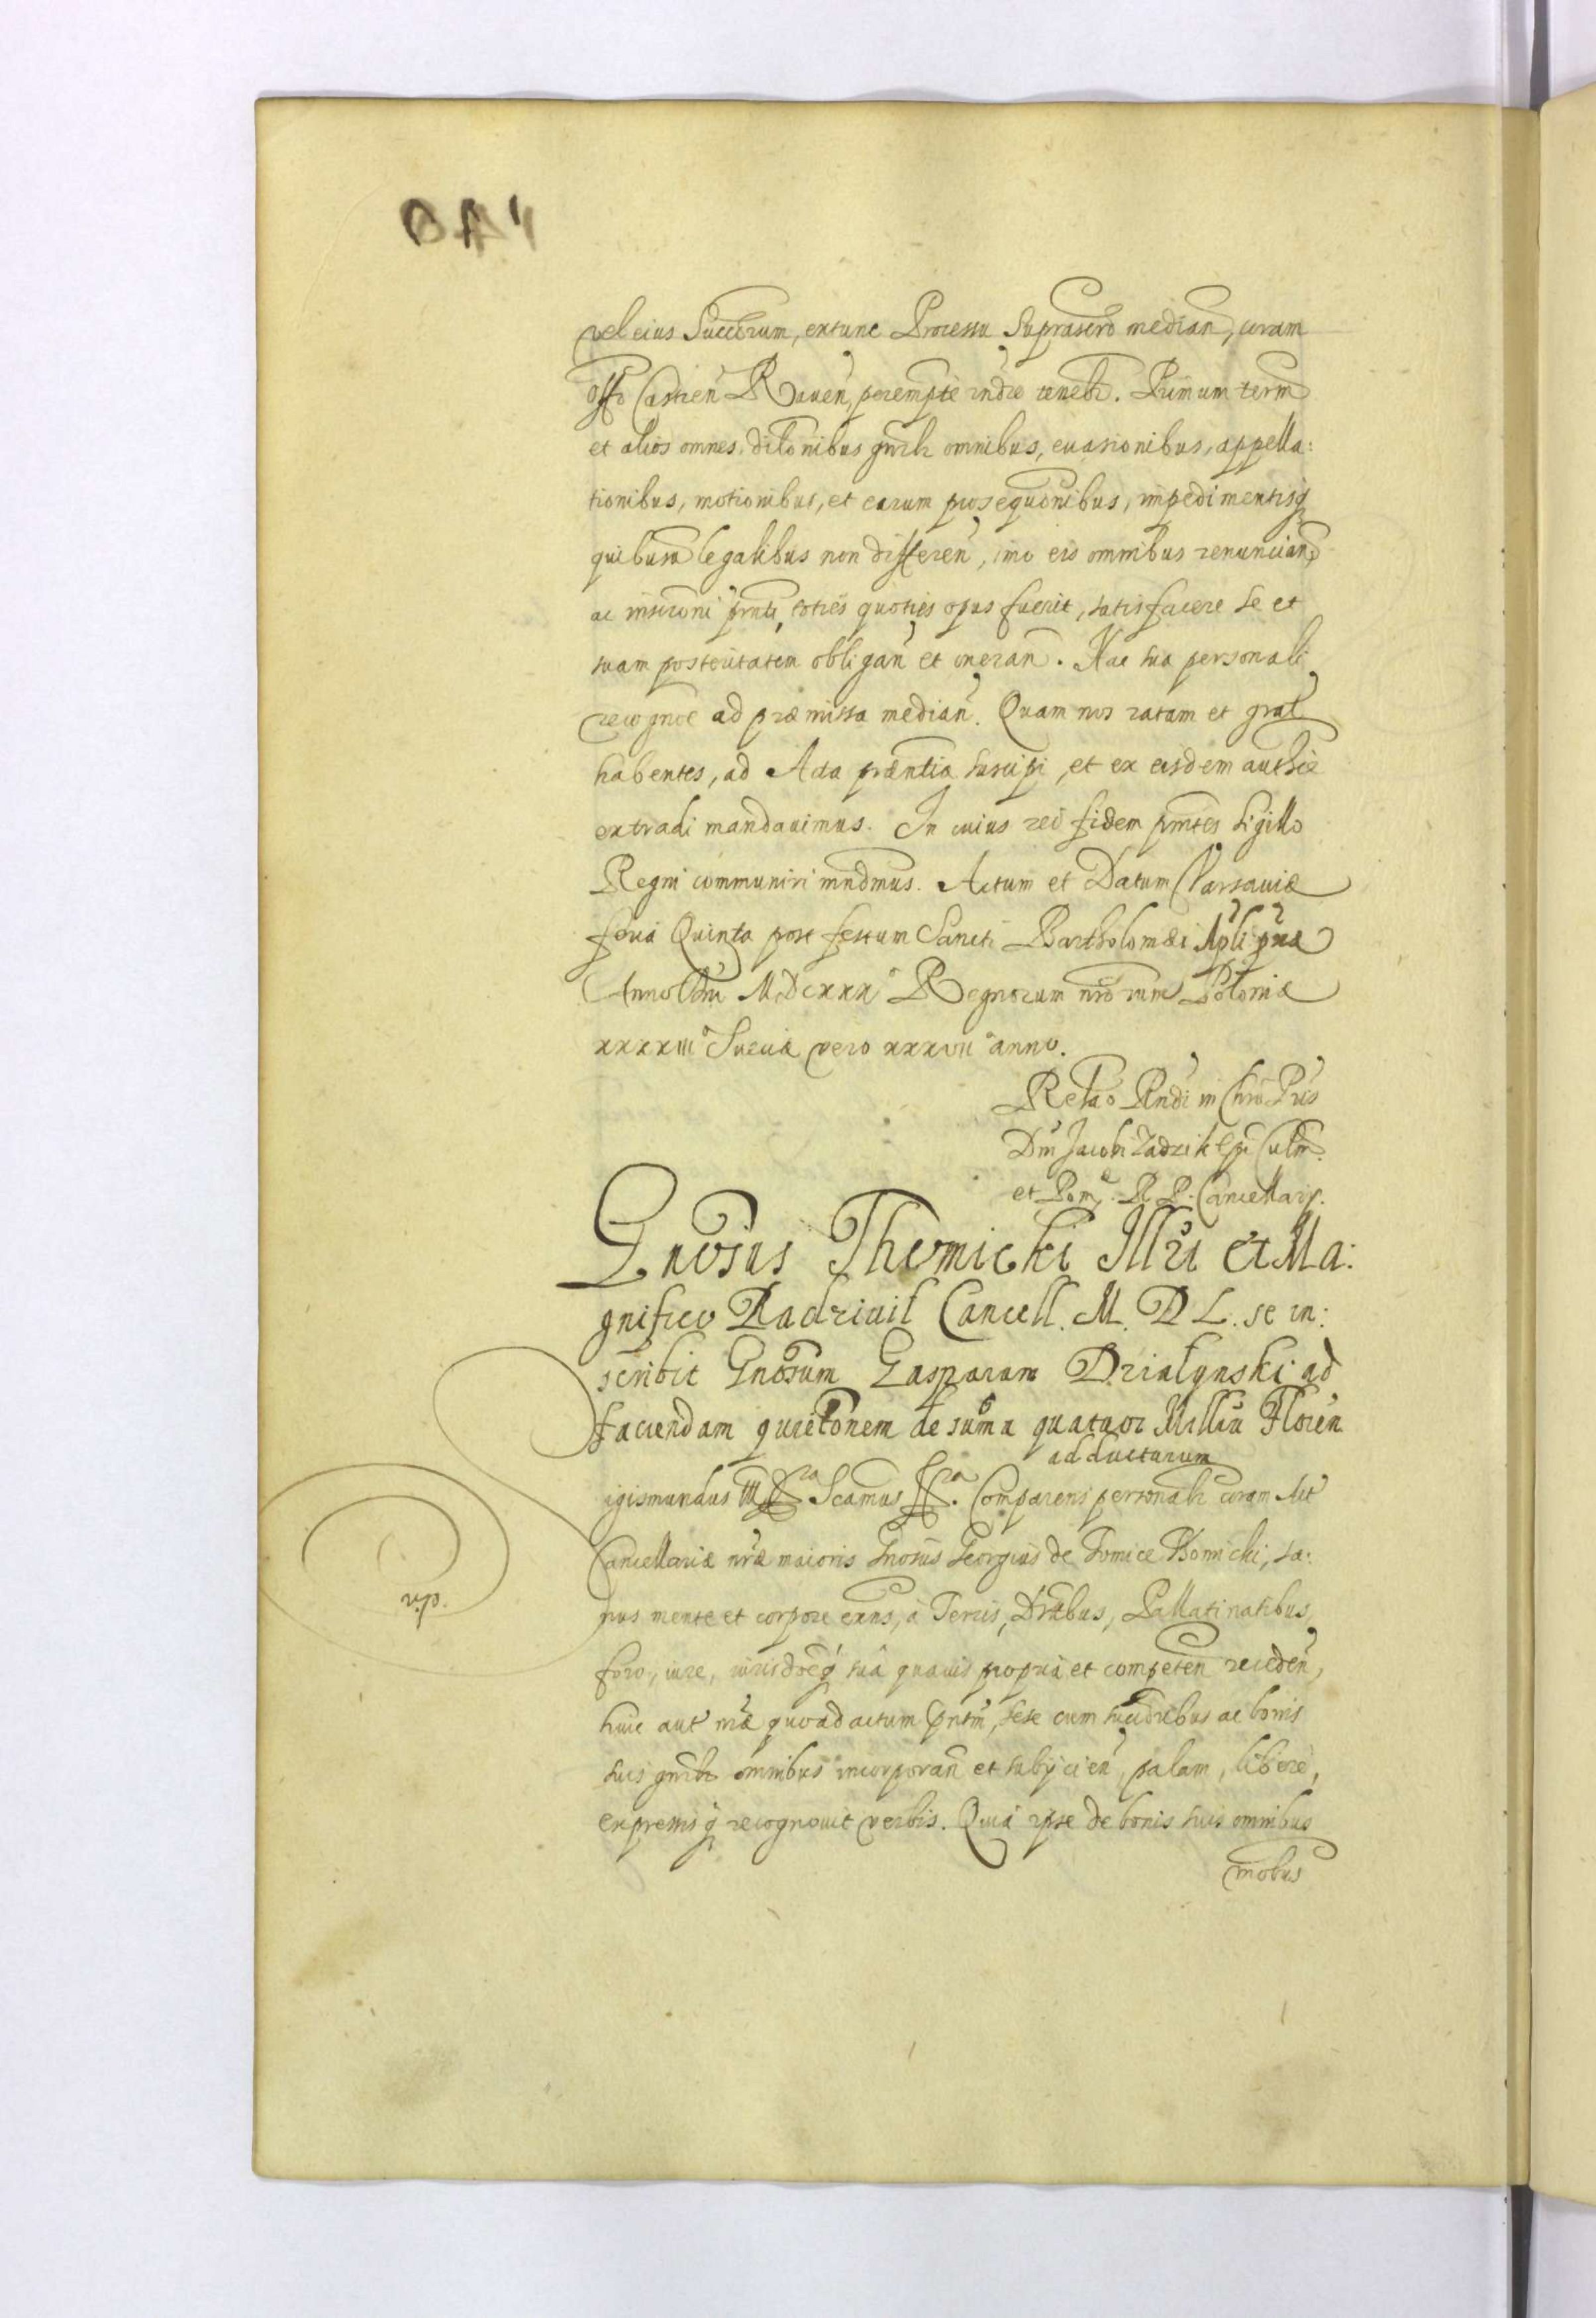 vel eius Succrum, extunc Processu Suprascro median, coram
Offo Castren Raven, perempte indre tenebr. Primum term
et alios omnes ditonibus gnrlr omnibus, evasionibus, appella:
tionibus, motionibus, et earum prosequonibus, impedimentisq
quibusvis legalibus non differen, imo eis omnibus renuncian,
ac inscroni prnti, toties quoties opus fuerit, satisfacere se et
suam posteritatem obligan et oneran. Hac sua personali
recognoe ad præmissa median. Quam nos ratam et grat
habentes, ad Acta præntia suscipi, et ex eisdem authce
extradi mandavimus. In cuius rei fidem prntes Sigillo
Regni communiri mndmus. Actum et Datum Varsaviæ
feria Quinta post festum Sancti Bartholomæi Apli pxa
Anno Dni MDCXXX° Regnorum nrorum Poloniæ
XXXXIII° Sueciæ vero XXXVII° anno.
Relao Rndi in Chro Pris
Dni Jacobi Zadzik Epi Culm.
et Pome. R P. Cancellarij.
Gnosus Thomicki Illri et Ma:
gnifico Radzivil Cancell. M. D L. se in:
scribit Gnosum Gasparum Dzialynski ad
faciendam quietonem de suma quatuor Milliu Floren
adducturum
igismundus III D. ra Scamus ra. Comparens personalr coram Act
Cancellariæ nræ maioris Gnosus Georgius de Tomice Thomicki, sa:
nus mente et corpore exns, à Terris, Drtibus, Pallatinatibus,
foro, iure, iurisdoeq sua quavis propria et competen receden,
huic aut nræ quoad actum pntm, sese cum succribus ac bonis
suis gnrlr omnibus incorporan et subijcien, palam, liberè,
expressisq recognovit verbis. Quia ipse de bonis suis omnibus
mobus